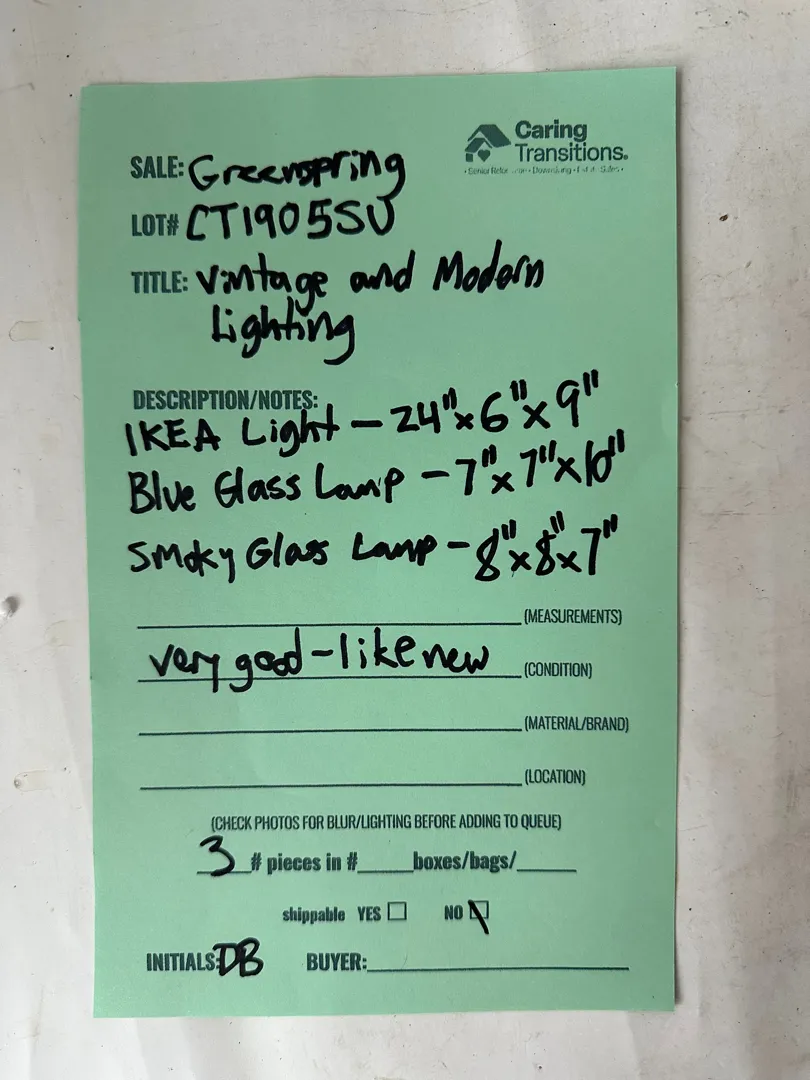 Caring
Transitions®
SALE: Greenspring
LOT# CT1905SU
TITLE: Vintage and Modern
Lighting
DESCRIPTION/NOTES:
IKEA Light - 24" x 6" x 9"
Blue Glass Lamp - 7" x 7" x 10"
Smoky Glass Lamp - 8" x 8" x 7"
(MEASUREMENTS)
very good - like new (CONDITION)
(MATERIAL/BRAND)
(LOCATION)
(CHECK PHOTOS FOR BLUR/LIGHTING BEFORE ADDING TO QUEUE)
3 # pieces in #_____boxes/bags/_____
shippable YES ☐ NO ☑
INITIALS: DB BUYER: